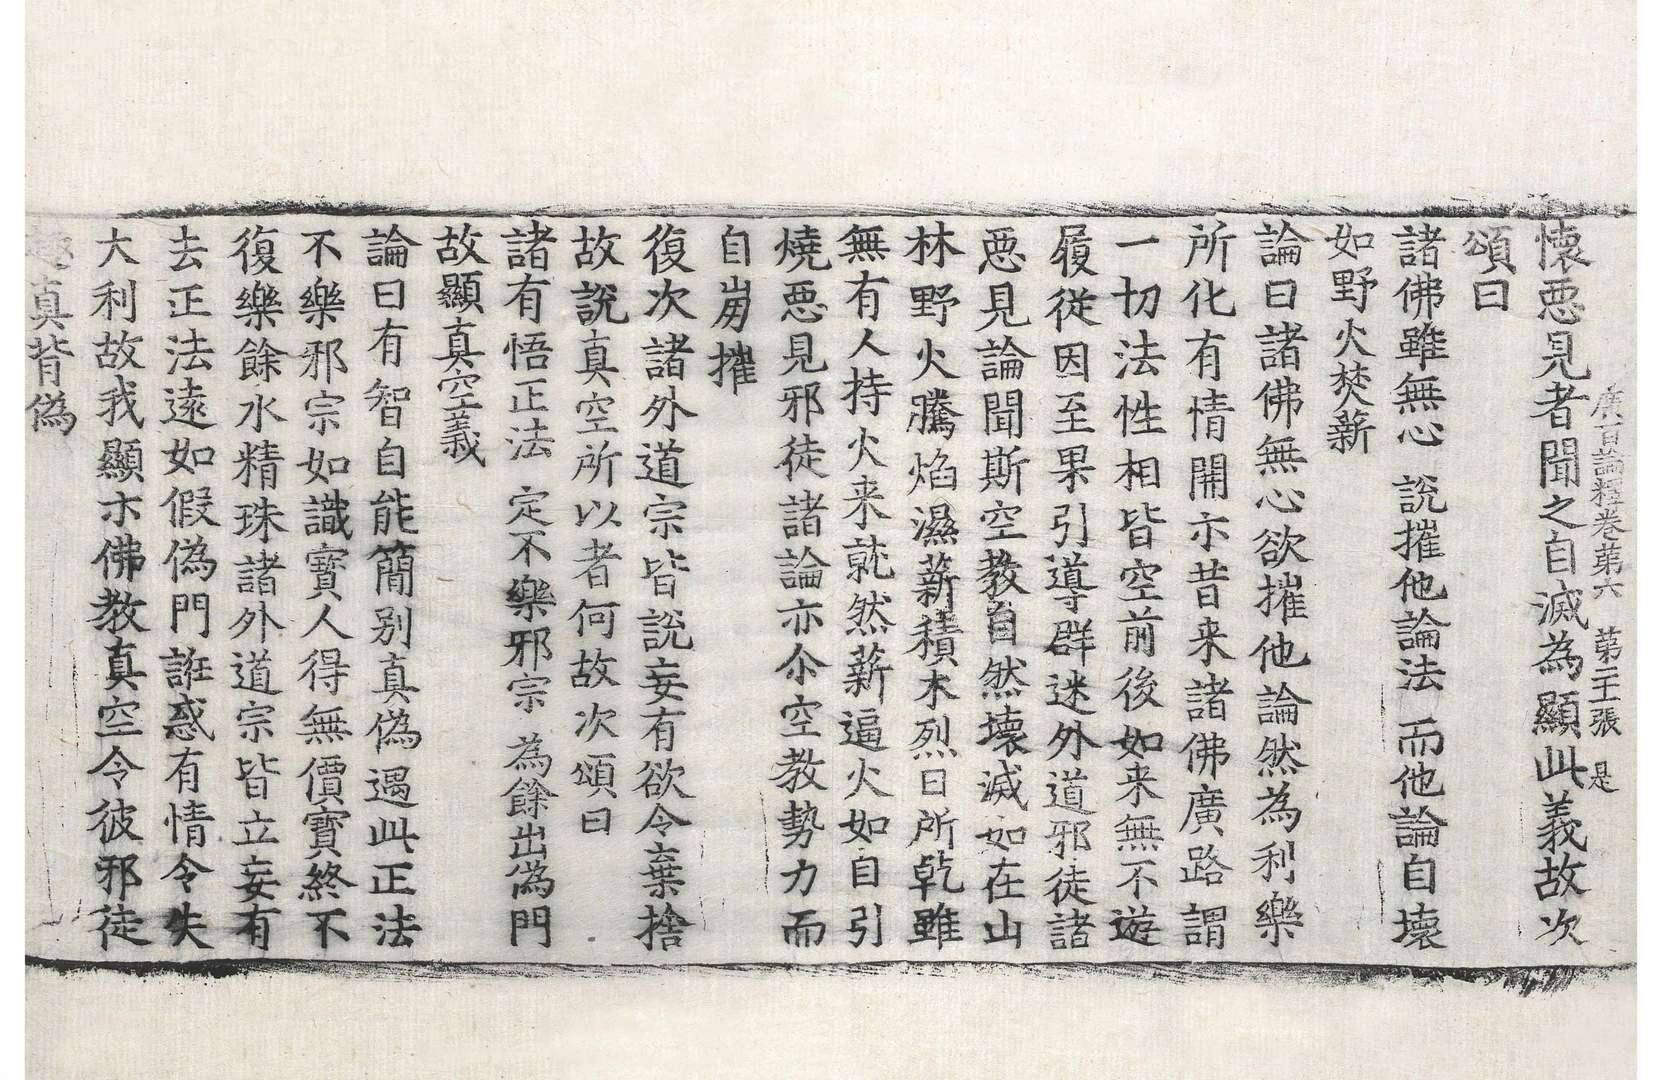 懐惡見者聞之自滅為顯此義故次
廣百論釋卷第六　第二十張　是
頌曰
諸佛雖無心　說摧他論法　而他論自壞
如野火焚薪
論曰諸佛無心欲摧他論然為利樂
所化有情開示昔来諸佛廣路謂
一切法性相皆空前後如来無不遊
履從因至果引導群迷外道邪徒諸
惡見論聞斯空教自然壞滅如在山
林野火騰焰濕薪積木烈日所乾雖
無有人持火来就然薪逼火如自引
燒惡見邪徒諸論亦尒空教勢力而
自崩摧
復次諸外道宗皆說妄有欲令棄捨
故說真空所以者何故次頌曰
諸有悟正法　定不樂邪宗　為餘出偽門
故顯真空義
論曰有智自能簡別真偽遇此正法
不樂邪宗如識寶人得無價寶終不
復樂餘水精珠諸外道宗皆立妄有
去正法遠如假偽門誑惑有情令失
大利故我顯示佛教真空令彼邪徒
真背偽